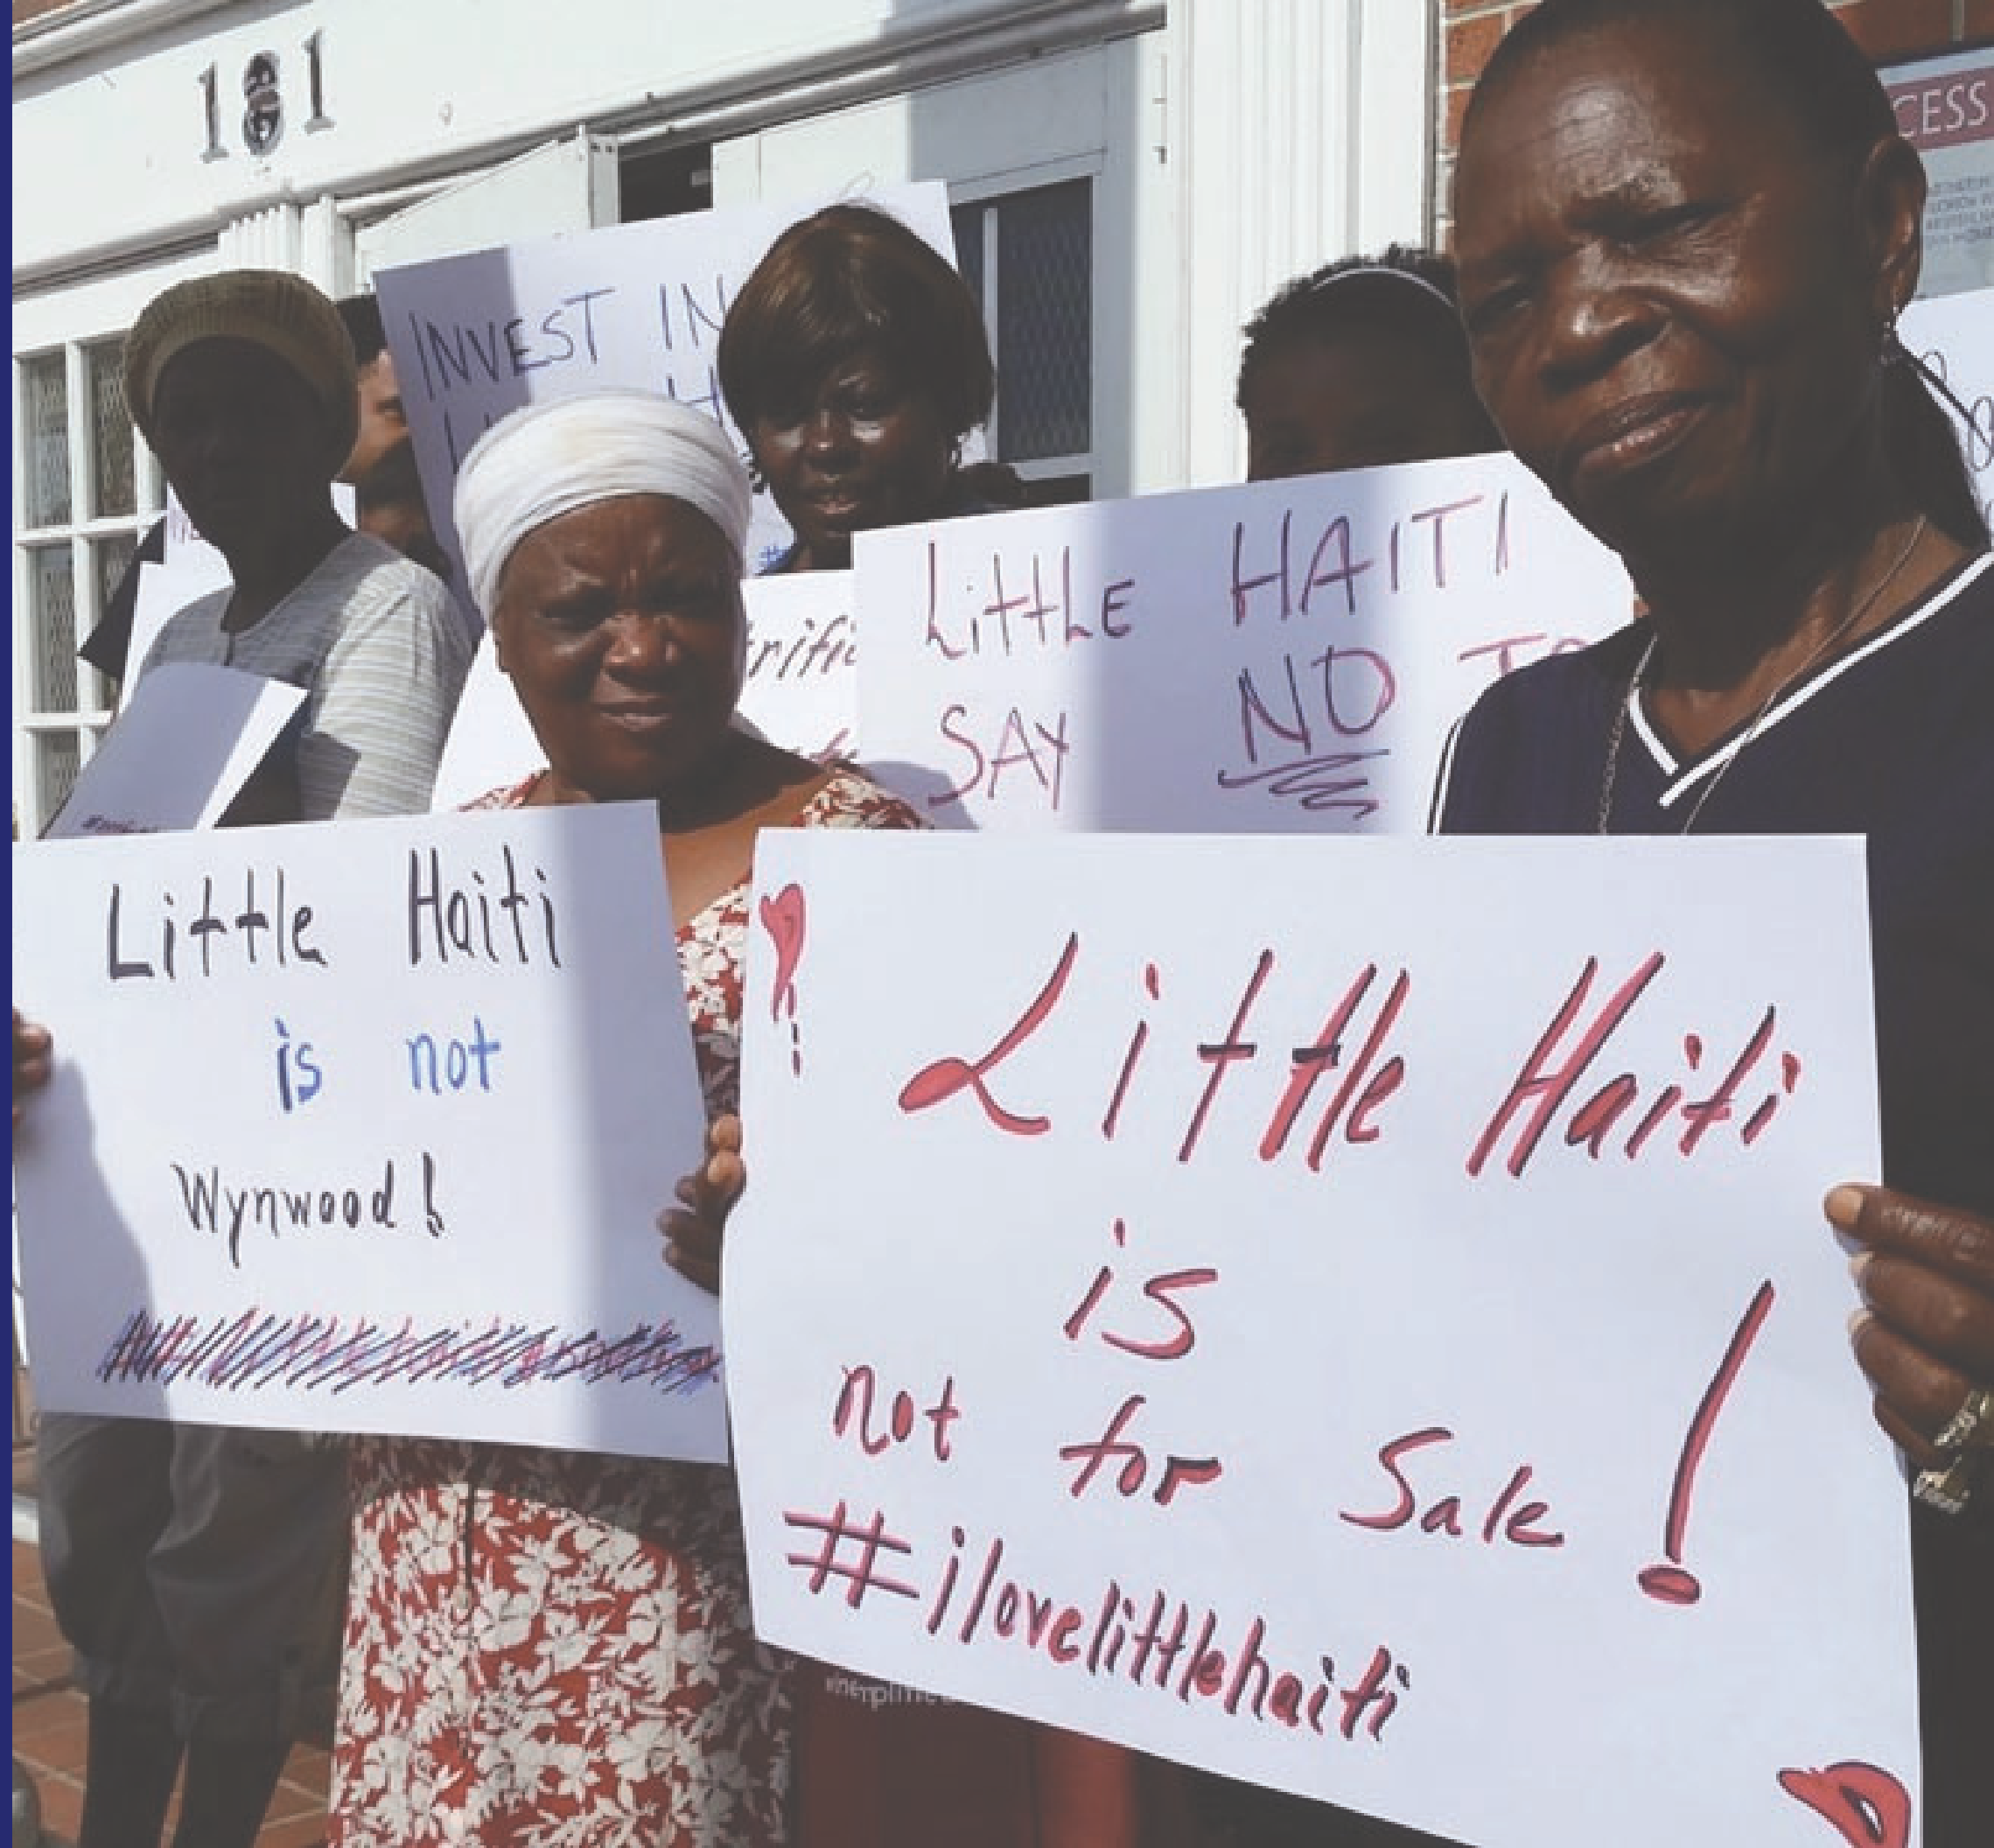 181
CESS
INVEST IN
LITTLE HAITI
SAY NO TO
Little Haiti
is not
Wynwood!
Little Haiti
is
not for Sale!
#ilovelittlehaiti